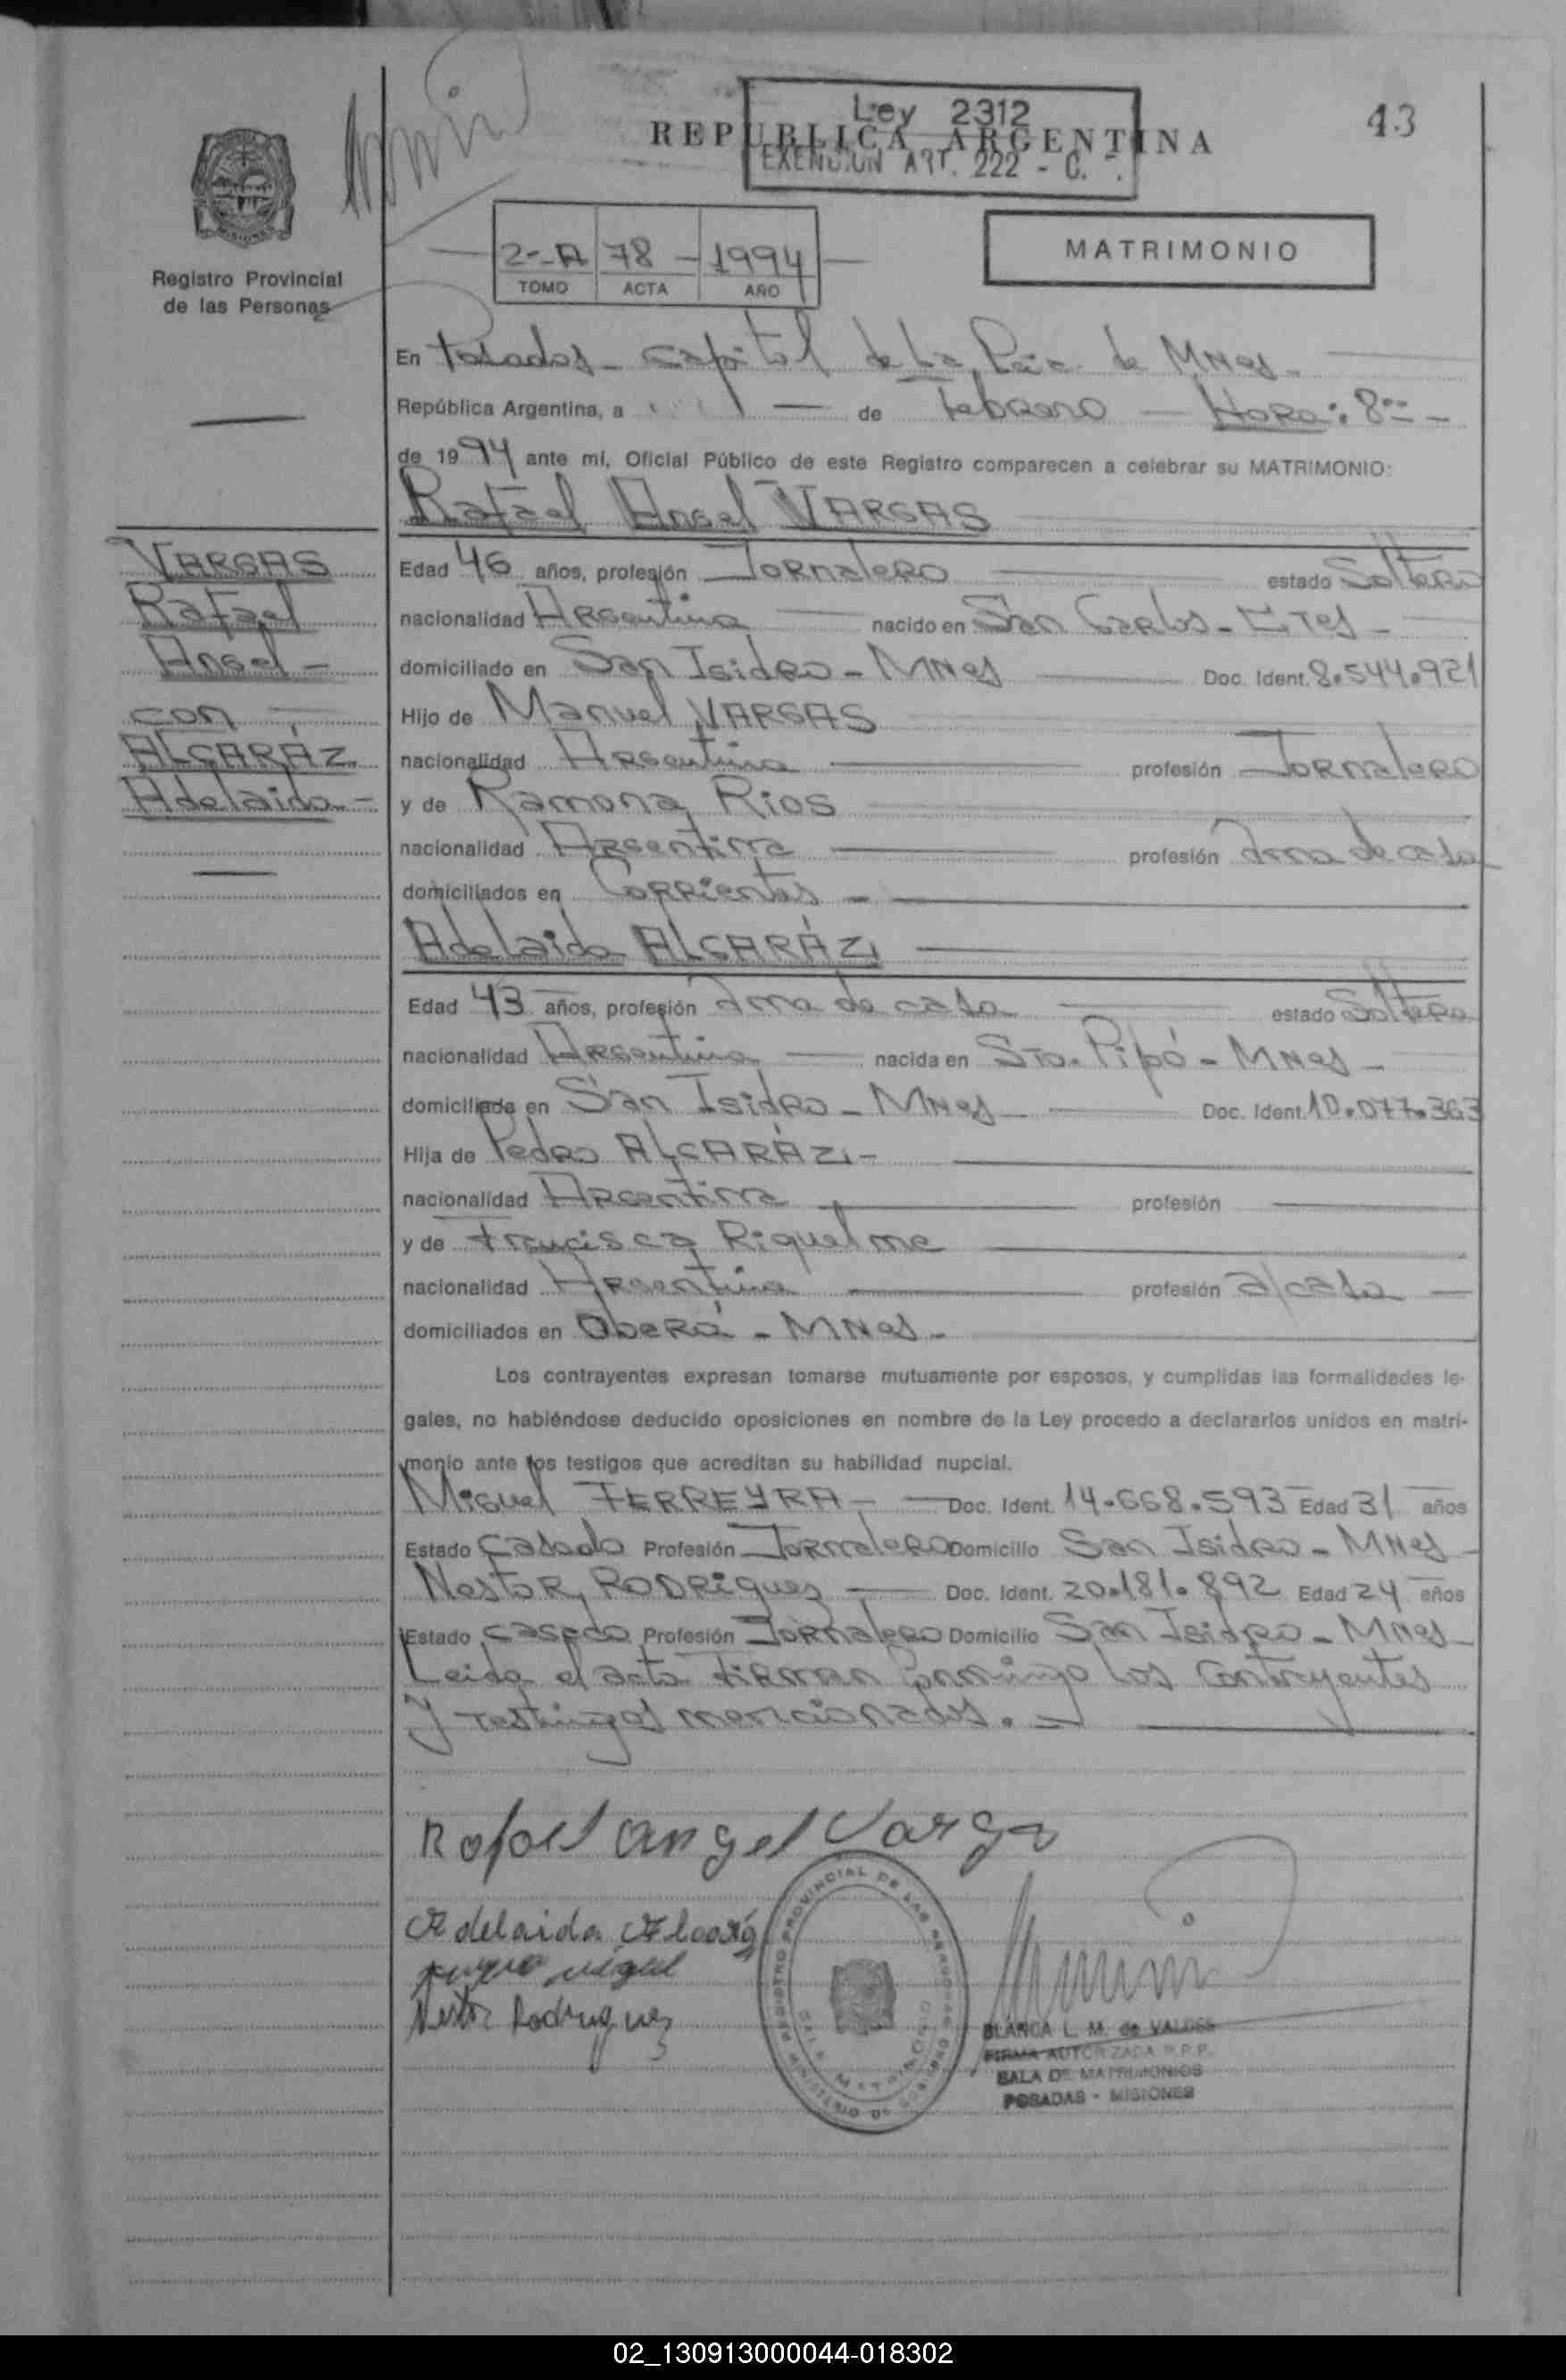 Ley 2312
43
REPUBLICA ARGENTINA
EXENCION ART. 222 - C.
2-A 78 - 1994
TOMO ACTA AÑO
MATRIMONIO
Registro Provincial
de las Personas
En Posadas - capital de la Pcia. de MNes -
República Argentina, a 1 - de Febrero - Hora: 8== -
de 1994 ante mi, Oficial Público de este Registro comparecen a celebrar su MATRIMONIO:
Rafael Angel VARGAS
VARGAS
Rafael
Angel -
con -
ALCARÁZ
Adelaida -
Edad 46 años, profesión Jornalero estado Soltero
nacionalidad Argentina nacido en San Carlos - Ctes -
domiciliado en San Isidro - MNes Doc. Ident. 8.544.921
Hijo de Manuel VARGAS
nacionalidad Argentina profesión Jornalero
y de Ramona Rios
nacionalidad Argentina profesión Ama de casa
domiciliados en Corrientes -
Adelaida ALCARÁZ
Edad 43 años, profesión Ama de casa estado Soltera
nacionalidad Argentina nacida en Sto. Pipó - MNes -
domiciliada en San Isidro - MNes Doc. Ident. 10.077.363
Hija de Pedro ALCARÁZ -
nacionalidad Argentina profesión
y de Francisca Riquelme
nacionalidad Argentina profesión a/casa -
domiciliados en Oberá - MNes -
Los contrayentes expresan tomarse mutuamente por esposos, y cumplidas las formalidades le-
gales, no habiéndose deducido oposiciones en nombre de la Ley procedo a declararlos unidos en matri-
monio ante los testigos que acreditan su habilidad nupcial.
Miguel FERREYRA - Doc. Ident. 14.668.593 Edad 31 años
Estado Casado Profesión Jornalero Domicilio San Isidro - MNes -
Nestor RODRiguez - Doc. Ident. 20.181.892 Edad 24 años
Estado casado Profesión Jornalero Domicilio San Isidro - MNes -
Leida el acta Firman Conmigo los Contrayentes
y testigos mencionados. -
Rafael angel Varga
Adelaida Alcaráz
Nestor Rodriguez
REGISTRO PROVINCIAL DE LAS PERSONAS
MINISTERIO DE GOBIERNO
BLANCA L. M. de VALDES
FIRMA AUTORIZADA R.P.P.
SALA DE MATRIMONIOS
POSADAS - MISIONES
02_130913000044-018302